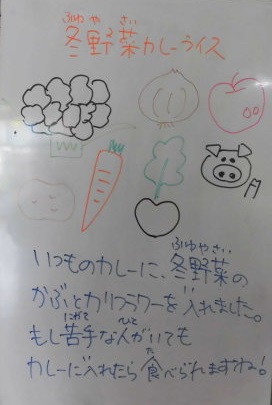 ふゆ や さい
冬野菜カレーライス
肉
いつものカレーに、冬野菜の
ふゆやさい
かぶとカリフラワーを入れました。
もし苦手な人がいても
にがて ひと
カレーに入れたら食べられますね!
た